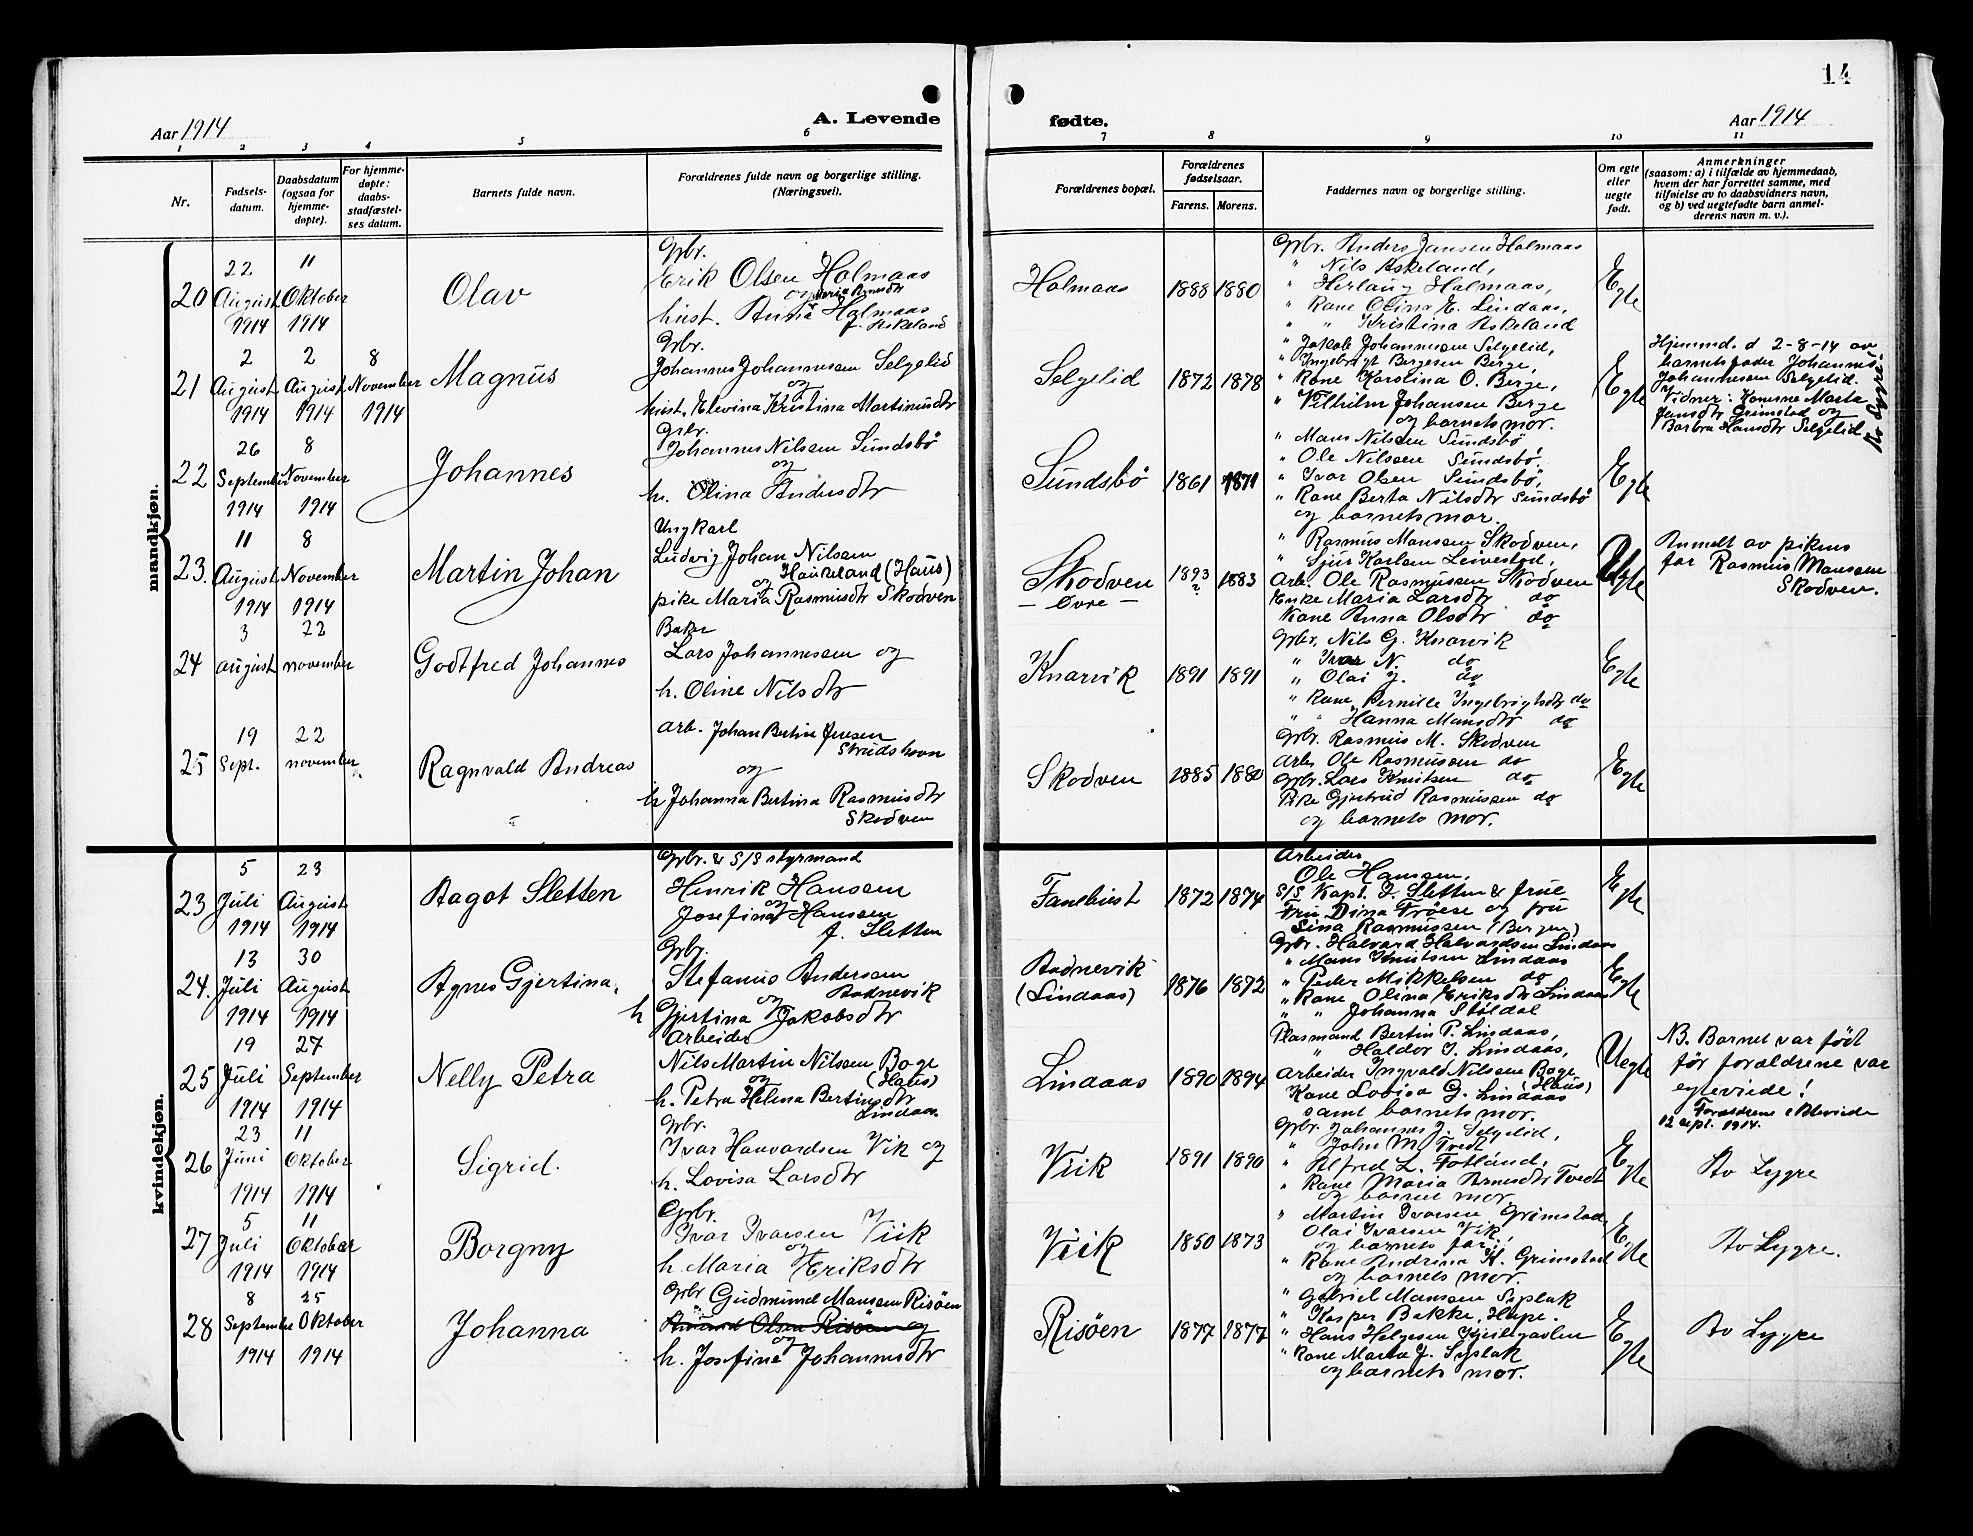 14
Aar 1914
A. Levende
fødte.
Aar 1914
1 2 3 4 5 6 7 8 9 10 11
Nr.
Fødsels-
datum.
Daabsdatum
(ogsaa for
hjemme-
døpte).
For hjemme-
døpte:
daabs-
stadfæstel-
ses datum.
Barnets fulde navn.
Forældrenes fulde navn og borgerlige stilling.
(Næringsvei).
Forældrenes bopæl.
Forældrenes
fødselsaar.
Farens. Morens.
Faddernes navn og borgerlige stilling.
Om egte
eller
uegte
født.
Anmerkninger
(saasom: a) i tilfælde av hjemmedaab,
hvem der har forrettet samme, med
tilføielse av to daabsvidners navn,
og b) ved uegtefødte barn anmel-
derens navn m. v.).
mandkjøn.
20
22
August
1914
11
Oktober
1914
Olav
Gbr.
Erik Olsen Holmaas
og
hust. Anna Maria Arnesdtr Holmaas
f. Askeland
Holmaas
1888 1880
Gbr. Anders Jansen Holmaas
" Nils Askeland,
" Herlaug Holmaas,
" Kone Olina E. Lindaas,
" " Kristina Askeland
Egte
21
2
August
1914
2
August
1914
8
November
1914
Magnus
Gbr.
Johannes Johannessen Selgelid
og
hust. Elevina Kristina Martinusdtr
Selgelid
1872 1878
" Jakob Johannessen Selgelid,
" Ingebrigt Bergesen Berge,
" Kone Karolina O. Berge,
" Vilhelm Johansen Berge
og barnets mor.
Egte
Hjemmed. d 2-8-14 av
barnets fader Johannes
Johannessen Selgelid.
Vidner: Konerne Marta
Jensdtr Grimstad og
Barbra Hansdtr Selgelid
Av Lygre.
22
26
September
1914
8
November
1914
Johannes
Gbr.
Johannes Nilssen Sundsbö
og
h. Olina Andersdtr
Sundsbö
1861 1871
" Mons Nilsen Sundsbö
" Ole Nilssen Sundsbö,
" Ivar Olsen Sundsbö,
" Kone Berta Nilsdtr Sundsbö
og barnets mor.
Egte
23.
11
August
1914
8
November
1914
Martin Johan
Ungkarl
Ludvig Johan Nilsen
Haukeland (Haus)
og
pike Maria Rasmusdtr Skodven
Skodven
— Øvre —
1893
?
1883
" Rasmus Monsen Skodven,
" Sjur Karlsen Leivestad,
Arb. Ole Rasmussen Skodven
Enke Maria Larsdtr do
Kone Anna Olsdtr do
Uegte
Anmelt av pikens
far Rasmus Monsen
Skodven.
24
3
august
22
november
Godtfred Johannes
Baker
Lars Johannessen og
h. Oline Nilsdtr
Knarvik
1891 1891
Gbr. Nils G. Knarvik
" Ivar N. do
" Olai J. do
" Kone Pernille Ingebrigtsdtr do
" " Hanna Monsdtr do
Egte
25
19
Sept.
22
november
Ragnvald Andreas
Arb. Johan Bertin Jensen
Strudshavn
og
h Johanna Bertina Rasmusdtr
Skodven
Skodven
1885 1880
Gbr. Rasmus M. Skodven
Arb. Ole Rasmussen do
Gbr. Lars Knutsen do
Pike Gjertrud Rasmussen do
og barnets mor.
Egte
kvindekjøn.
23
5
Juli
1914
23
August
1914
Aagot Sletten
Gbr. & S/S styrmand
Henrik Hansen
og
Josefina Hansen
f. Sletten
Fanebust
1872 1874
Arbeider
Ole Hansen,
S/S Kapt. J. Sletten & frue
Fru Dina Fröese og fru
Lina Rasmussen (Bergen)
Egte
24.
13
Juli
1914
30
August
1914
Agnes Gjertina,
Gbr.
Stefanus Andersen
Aadnevik
og
h Gjertina Jakobsdtr
Aadnevik
(Lindaas)
1876 1872
Gbr. Halvard Halvardsen Lindaas
" Mons Knutsen Lindaas
" Peder Mikkelsen do
" Kone Olina Eriksdtr Lindaas
" " Johanna Stöldal
Egte
25
19
Juli
1914
27
September
1914
Nelly Petra
Arbeider
Nils Martin Nilssen Boge
(Haus)
og
h. Petra Helena Bertinsdtr
Lindaas
Lindaas
1890 1894
Plasmand Bertin P. Lindaas,
" Haldor J. Lindaas,
Arbeider Ingvald Nilssen Boge
(Haus)
Kone Lovisa G. Lindaas
samt barnets mor.
Uegte
NB. Barnet var født
før forældrene var
egteviede!
Forældrene egteviede
12 sept. 1914.
26
23
Juni
1914
11
Oktober
1914
Sigrid.
Gbr.
Ivar Haavardsen Vik og
h. Lovisa Larsdtr
Viik
1891 1890
Gbr. Johannes J. Selgelid,
" John M. Tvedt
" Alfred L. Fotland,
" Kone Maria Arnesdtr Tvedt
og barnets mor.
Egte
Av Lygre
27
5
Juli
1914
11
Oktober
1914
Borgny
Gbr.
Ivar Ivarsen Viik
og
h. Maria Eriksdtr
Viik
1850 1873
" Martin Ivarsen Grimstad
Olai Ivarsen Vik,
og barnets far,
" Kone Andrina K. Grimstad
og barnets mor.
Egte
Av Lygre.
28
8
September
1914
25
Oktober
1914
Johanna
Gbr Gudmund Monsen Risöen
og
h. Josefine Johannesdtr
Risöen
1877 1877
" Gabriel Monsen Syslak
" Kasper Bakke, Hope.
" Hans Helgesen Kjeilegavlen
" Kone Marta J. Syslak
og barnets mor.
Egte
Av Lygre